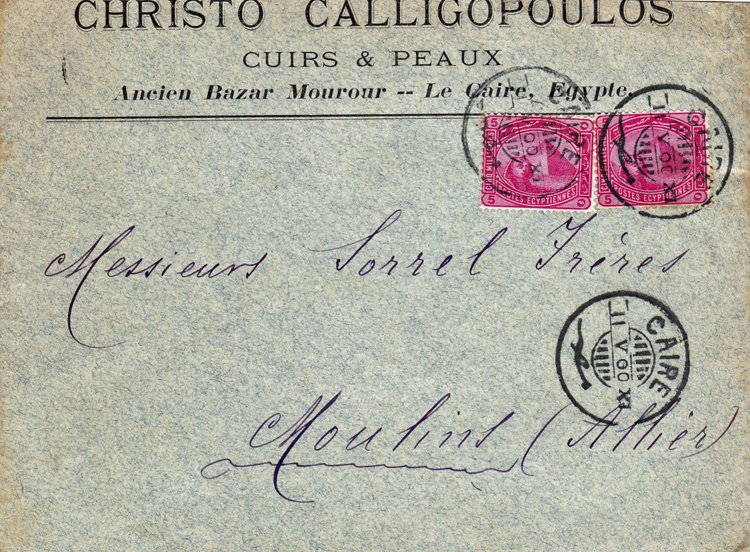 CHRISTO CALLIGOPOULOS
CUIRS & PEAUX
Ancien Bazar Mourour -- Le Caire, Egypte.
CAIRE
11 V 00 XI
CAIRE
11 V 00 XI
5 5
POSTES EGYPTIENNES
5 5
POSTES EGYPTIENNES
Messieurs Sorrel Frères
CAIRE
11 V 00 XI
Moulins (Allier)